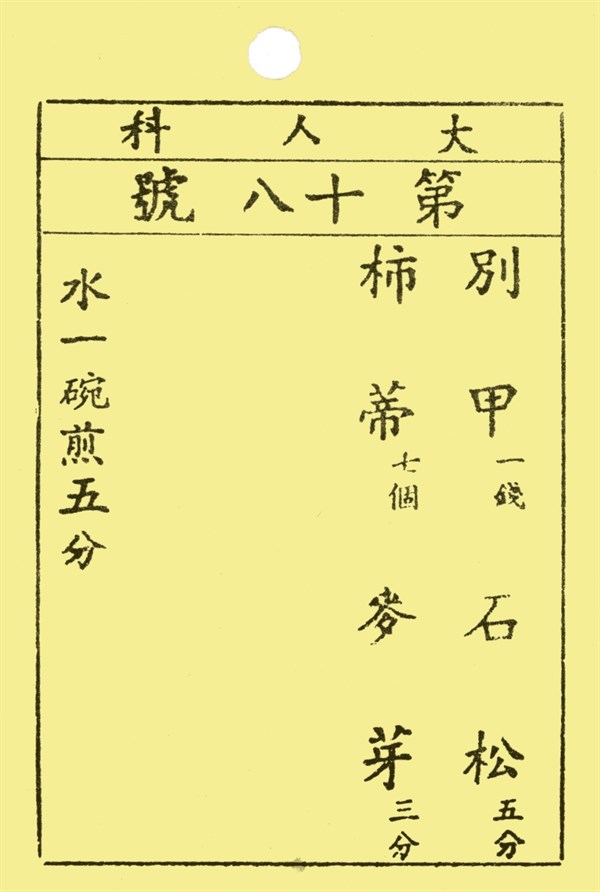 大人科
第十八號
別甲一錢 石松五分
柿蒂七個 麥芽三分
水一碗煎五分